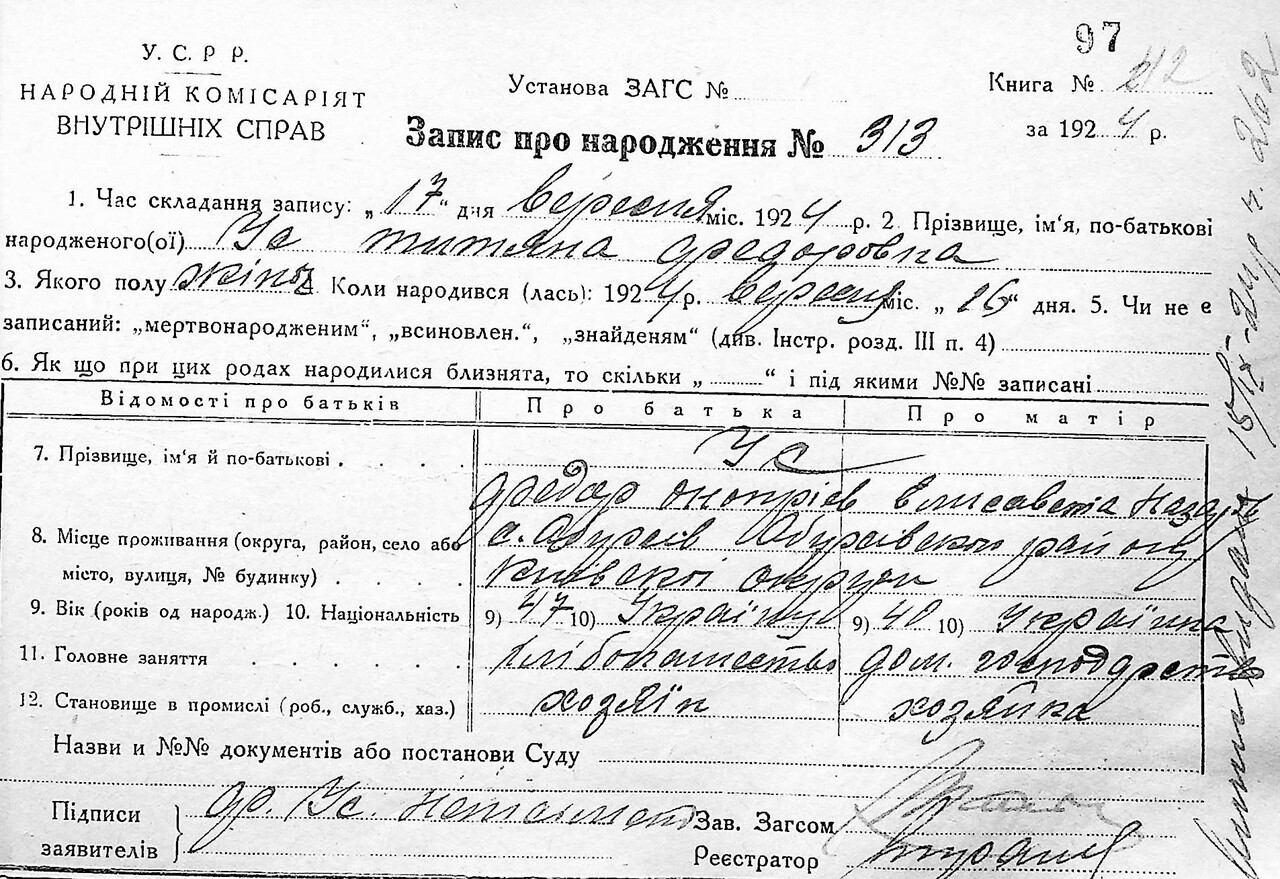 97
У. С. Р Р.
НАРОДНІЙ КОМІСАРІЯТ
ВНУТРІШНІХ СПРАВ
Установа ЗАГС №
Книга № 212
за 1924 р.
Запис про народження № 313
1. Час складання запису: „17“ дня вересня міс. 1924 р. 2. Прізвище, ім'я, по-батькові
народженого(ої) Ус Титяна Федоровна
3. Якого полу жіноч. Коли народився (лась): 1924 р. вересня міс. „16“ дня. 5. Чи не є
записаний: „мертвонародженим“, „всиновлен.“, „знайденям“ (див. Інстр. розд. III п. 4)
6. Як що при цих родах народилися близнята, то скільки „ “ і під якими №№ записані
Відомості про батьків Про батька Про матір
7. Прізвище, ім'я й по-батькові . . . . Ус
Федор Онопріев Елисавета Назар
8. Місце проживання (округа, район, село або с. Обухів Обухівского району
місто, вулиця, № будинку) . . . . Київскої округи
9. Вік (років од народж.) 10. Національність 9) 47 10) Українец 9) 40 10) Українка
11. Головне заняття . . . . . хлібопашество дом. господарство
12. Становище в промислі (роб., служб., хаз.) хозяїн хозяйка
Назви и №№ документів або постанови Суду
Підписи
заявителів
Ф. Ус.
Зав. Загсом
Реєстратор